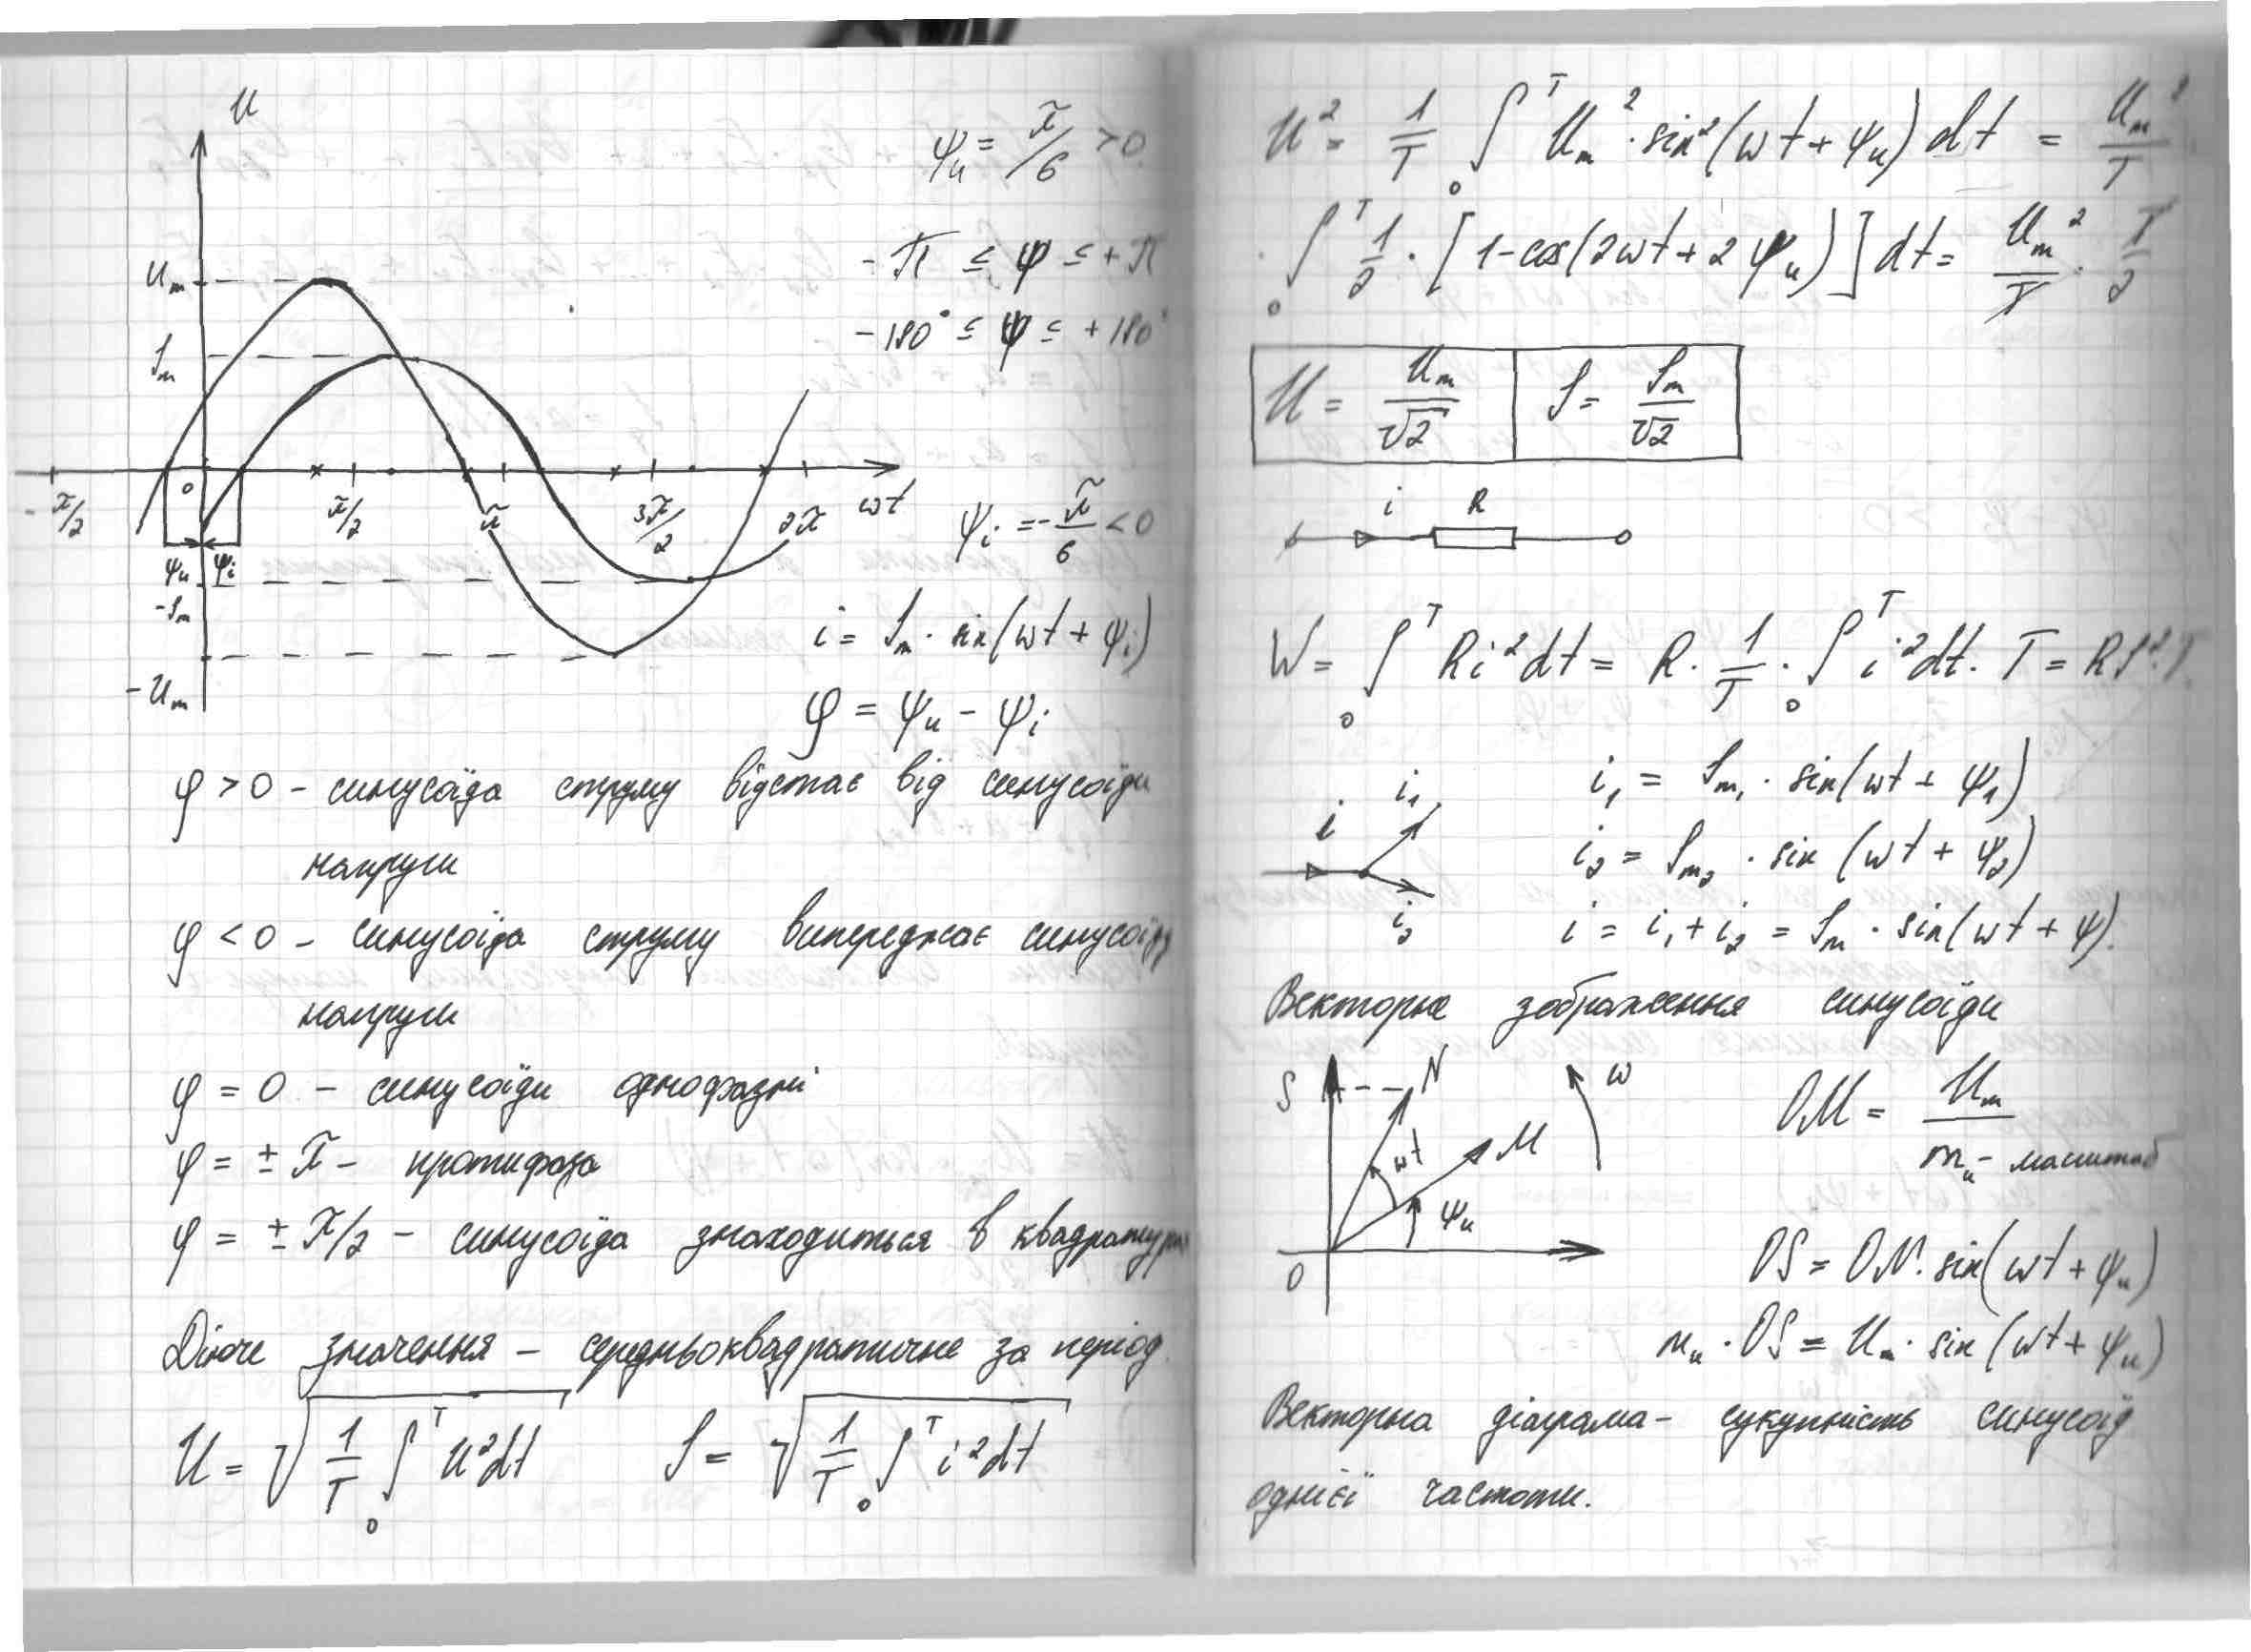 u
ψᵤ = π/6 > 0
-π ≤ ψ ≤ +π
-180° ≤ ψ ≤ +180°
Uₘ
Iₘ
-π/2
0
π/2
π
3π/2
2π
ωt
ψᵤ
ψᵢ
-Iₘ
-Uₘ
ψᵢ = -π/6 < 0
i = Iₘ · sin(ωt + ψᵢ)
φ = ψᵤ - ψᵢ
φ > 0 - синусоїда струму відстає від синусоїди
напруги
φ < 0 - синусоїда струму випереджає синусоїду
напруги
φ = 0 - синусоїди однофазні
φ = ± π - протифаза
φ = ± π/2 - синусоїда знаходиться в квадратурі
Діюче значення - середньоквадратичне за період
U = √(1/T ∫₀ᵀ u²dt)   I = √(1/T ∫₀ᵀ i²dt)
U² = 1/T ∫₀ᵀ Uₘ² · sin²(ωt + ψᵤ) dt = Uₘ²/T
· ∫₀ᵀ 1/2 · [1-cos(2ωt + 2ψᵤ)] dt = Uₘ²/T · T/2
U = Uₘ/√2   I = Iₘ/√2
i   R
W = ∫₀ᵀ Ri²dt = R · 1/T · ∫₀ᵀ i²dt · T = RI²·T
i   i₁   i₂
i₁ = Iₘ₁ · sin(ωt + ψ₁)
i₂ = Iₘ₂ · sin (ωt + ψ₂)
i = i₁ + i₂ = Iₘ · sin(ωt + ψ).
Векторне зображення синусоїди
S   N   ω
M
ωt
ψᵤ
0
OM = Uₘ/mᵤ - масштаб
OS = ON · sin(ωt + ψᵤ)
mᵤ · OS = Uₘ · sin (ωt + ψᵤ)
Векторна діаграма - сукупність синусоїд
однієї частоти.